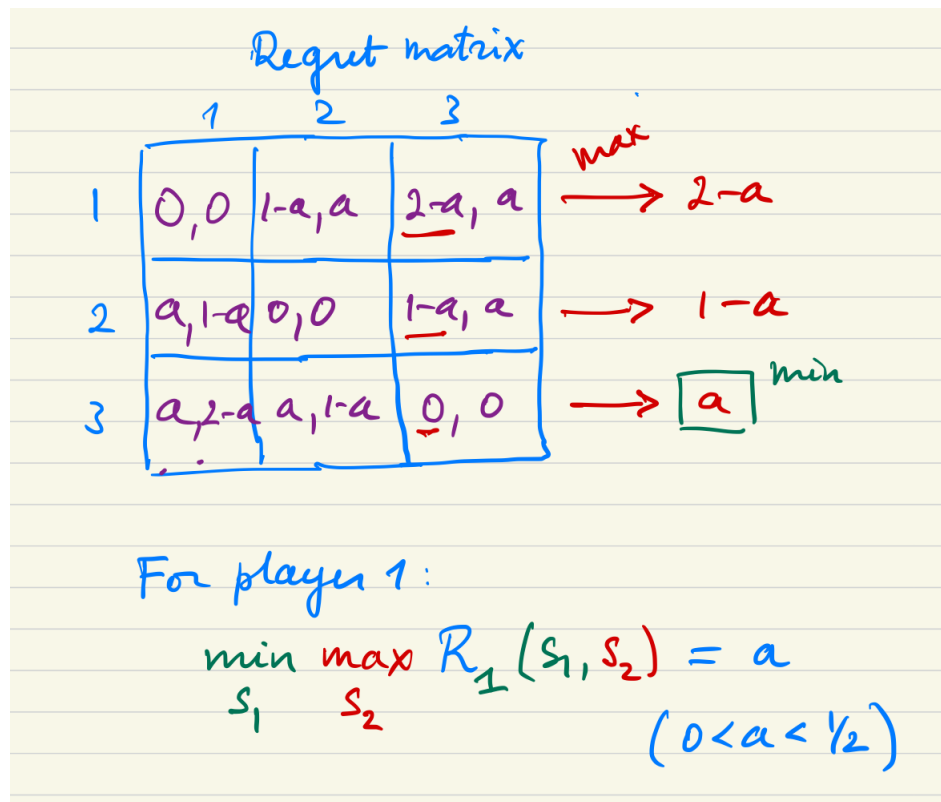 Regret matrix
1 2 3
max
1 0,0 1-a, a 2-a, a → 2-a
2 a,1-a 0,0 1-a, a → 1-a
min
3 a,2-a a,1-a 0, 0 → a
For player 1:
min max R₁ (s₁, s₂) = a
s₁ s₂
(0<a<1/2)